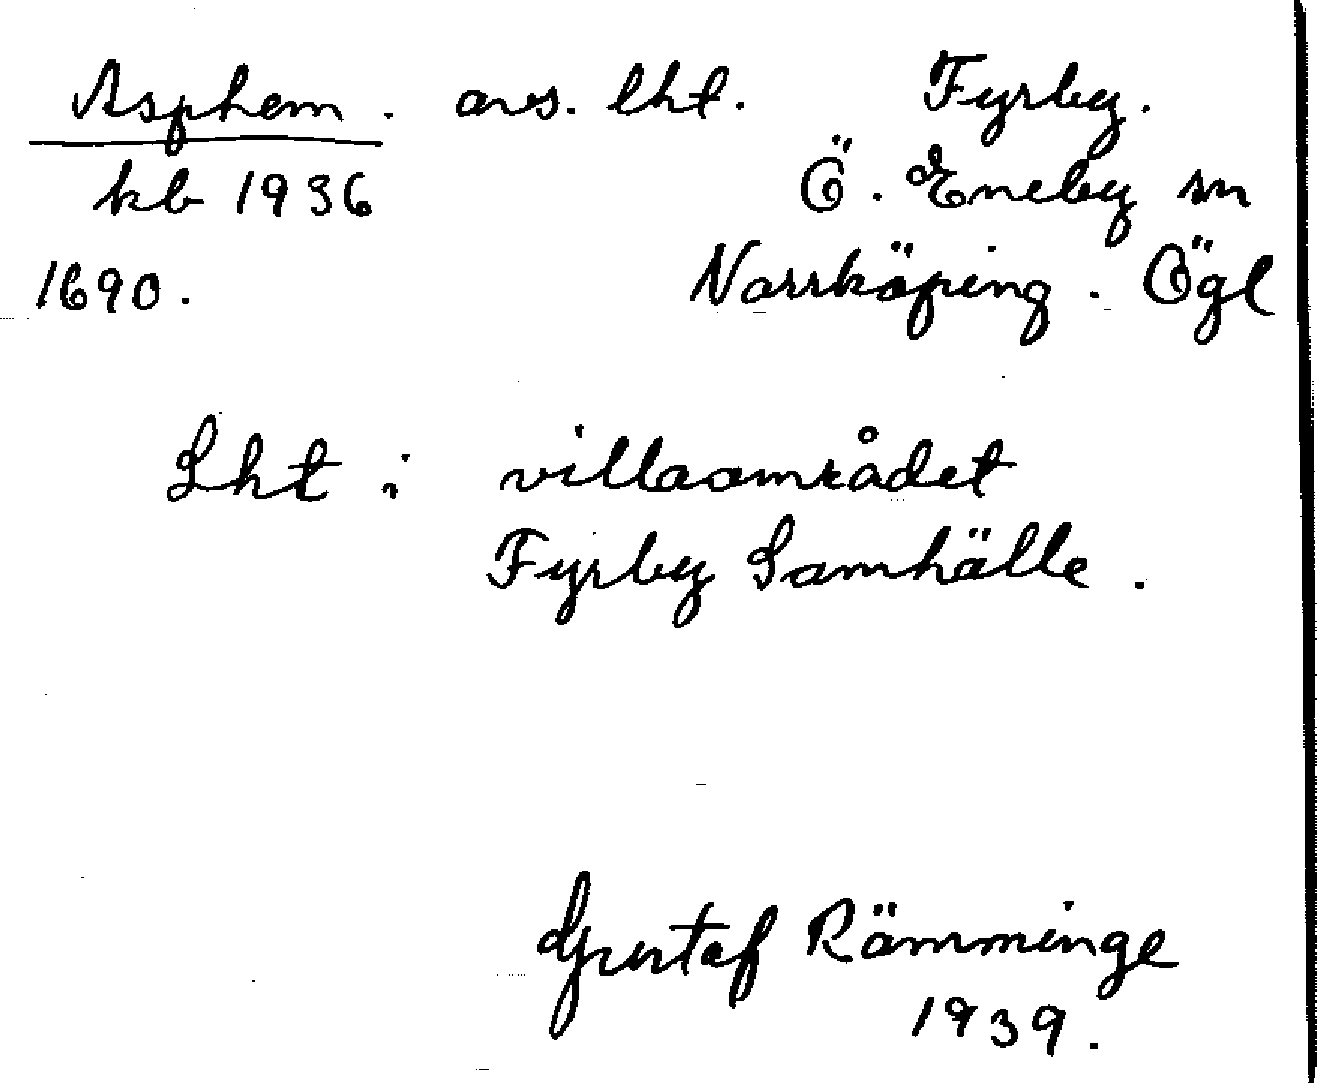 Asphem. avs. lht. Fyrby.
kb 1936 Ö. Eneby sn
1690. Norrköping. Ögl
Lht i villaområdet
Fyrby Samhälle.
Gustaf Rämminge
1939.